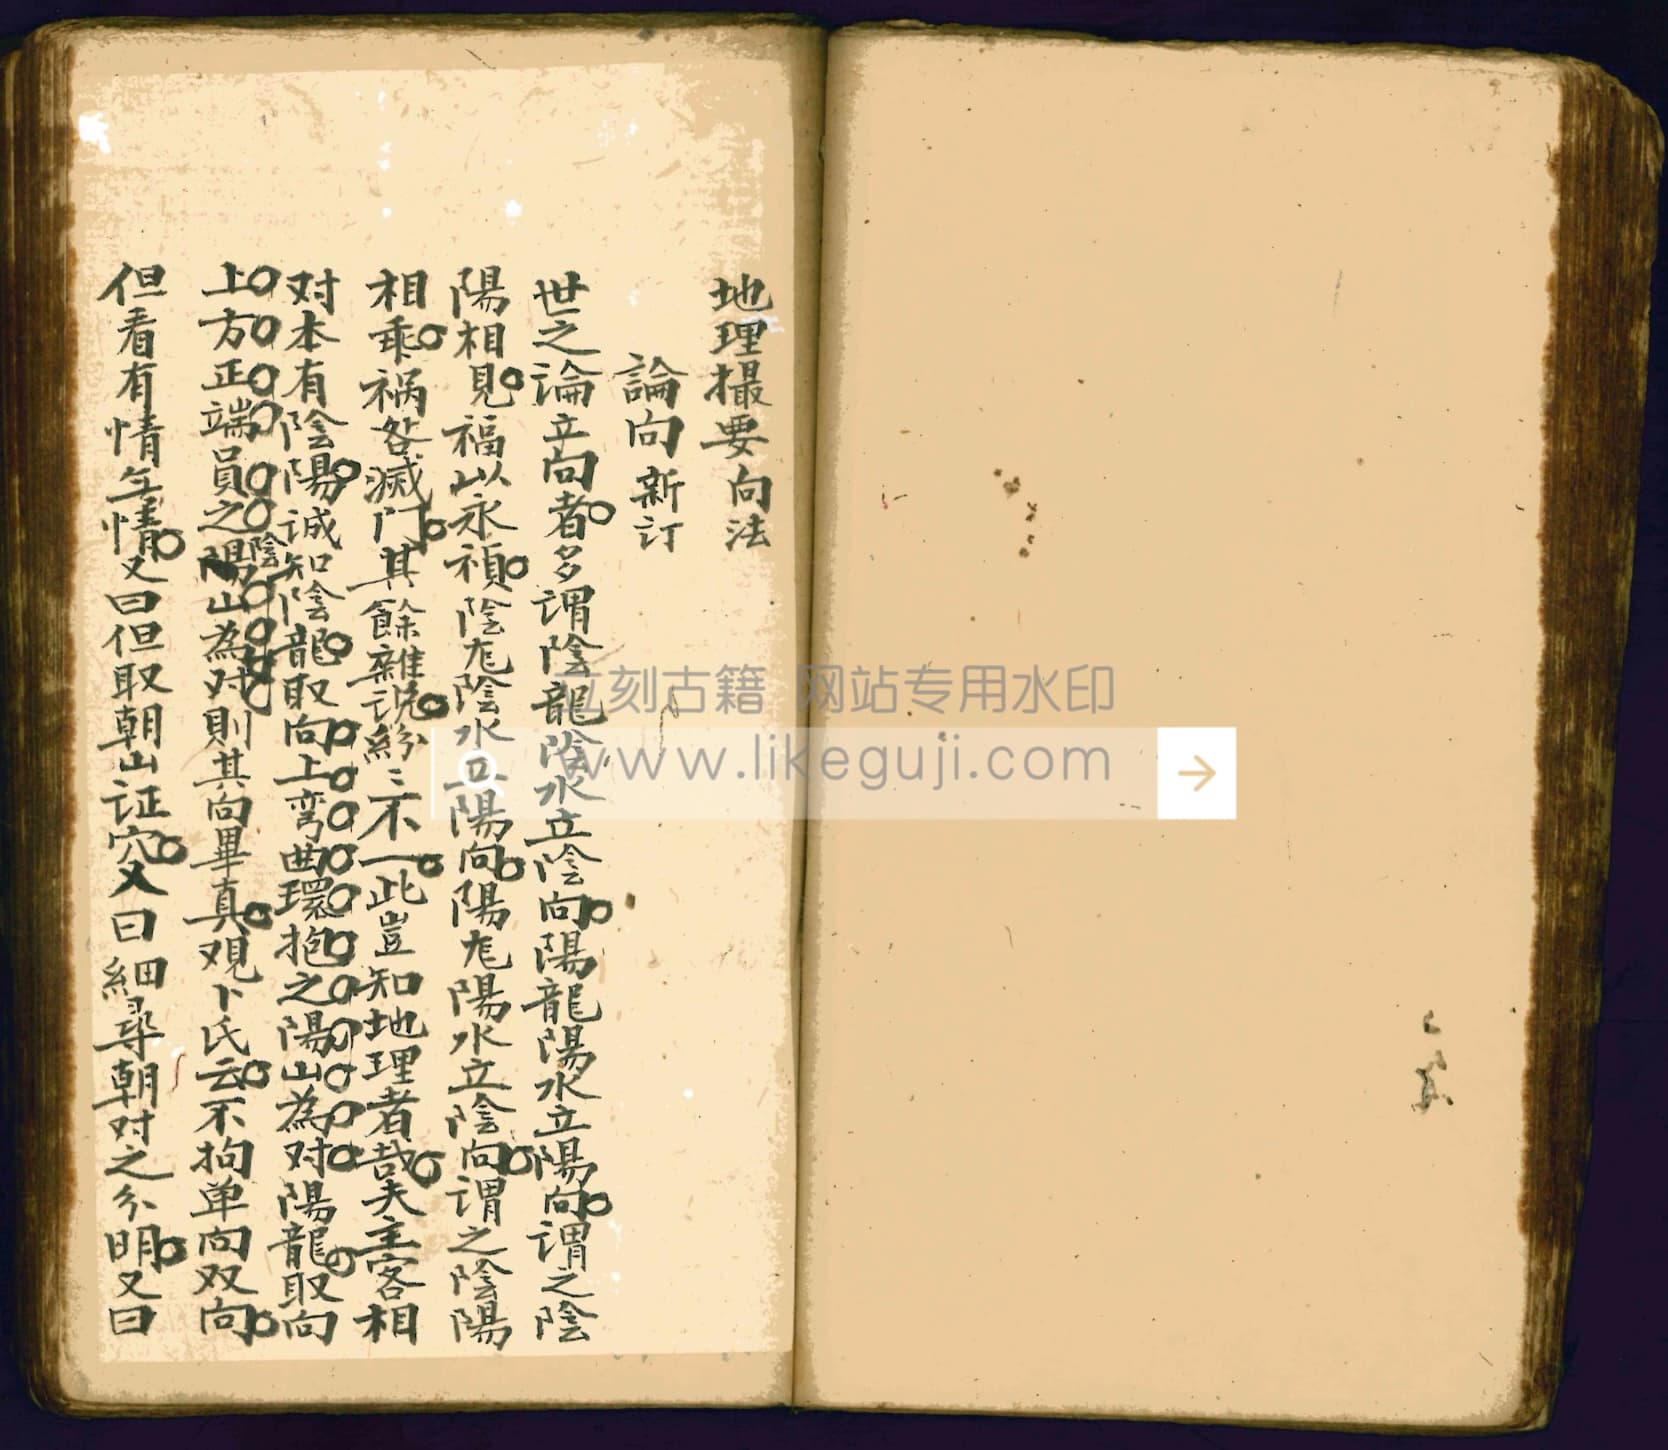 地理撮要 向法
論向 新訂
世之論立向者多谓陰龍陰水立陰向陽龍陽水立陽向谓之陰
陽相見福以永禎陰陰水立陽向陽陽水立陰向谓之陰陽
相乖祸咎滅門其餘雜説紛〻不一此豈知地理者哉夫主客相
对本有陰陽诚知陰龍取向上弯曲環抱之陽山為对陽龍取向
上方正端員之陰山為对則其向畢真观卜氏云不拘单向双向
但看有情无情又曰但取朝山证穴又曰細尋朝对之分明又曰
立刻古籍 网站专用水印
www.likeguji.com